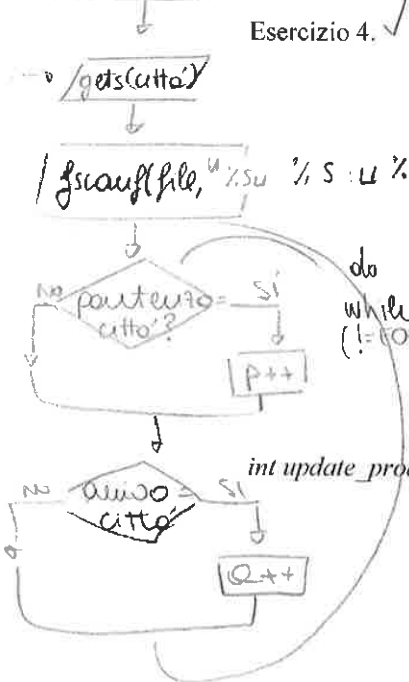 Esercizio 4.
gets(città)
fscanf(file, "%s␣ %s ␣ %
do
while
(!=EO
No partenza = Sì
città?
P++
int update_prod
No arrivo = Sì
città
Q++